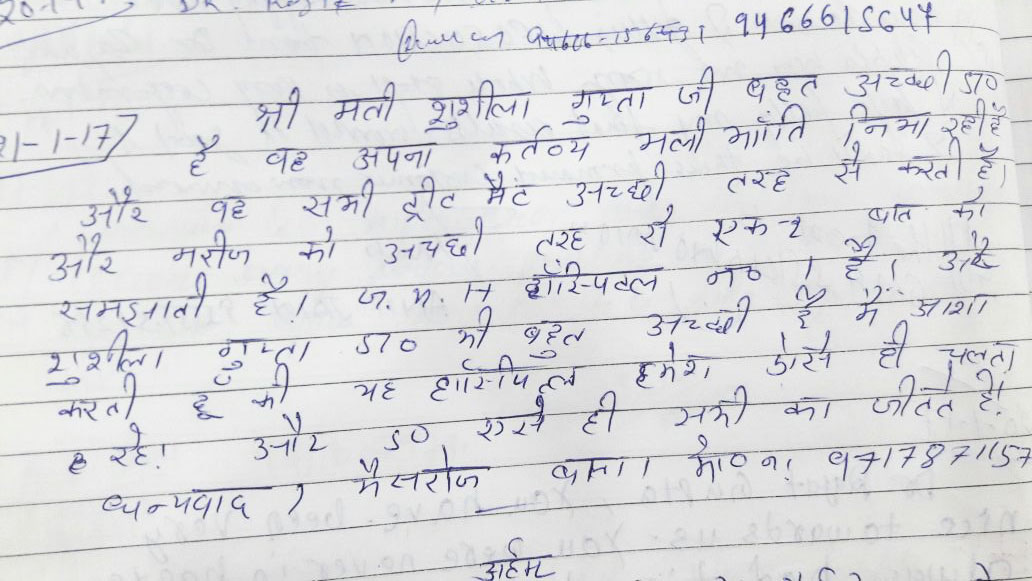 20.1
9466615647
21-1-17
श्री मती शुशीला गुप्ता जी बहुत अच्छी डा०
है वह अपना कर्तव्य भली भाांति निभा रही है
और वह सभी ट्रीट मैट अच्छी तरह से करती है।
और मरीज को अच्छी तरह से एक-२ बात को
समझाती है। ज. म. H हॉस्पिटल न० 1 है। और
शुशीला गुप्ता डा० भी बहुत अच्छी है मै आशा
करती हूँ की यह हॉस्पिटल हमेशा ऐसे ही चलता
रहे। और डा० एसे ही सभी का जीतते है।
धन्यवाद, मै सरोज बाला। मो० न० 9717871157
अर्हम